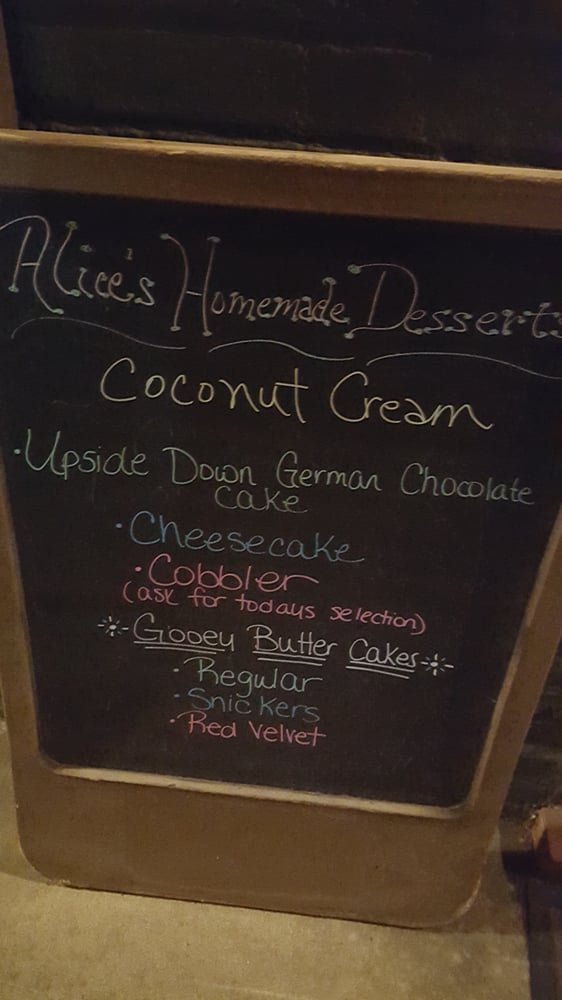 Alice's Homemade Desserts
Coconut Cream
·Upside Down German Chocolate
Cake
·Cheesecake
·Cobbler
(ask for todays selection)
Gooey Butter Cakes
·Regular
·Snickers
·Red Velvet